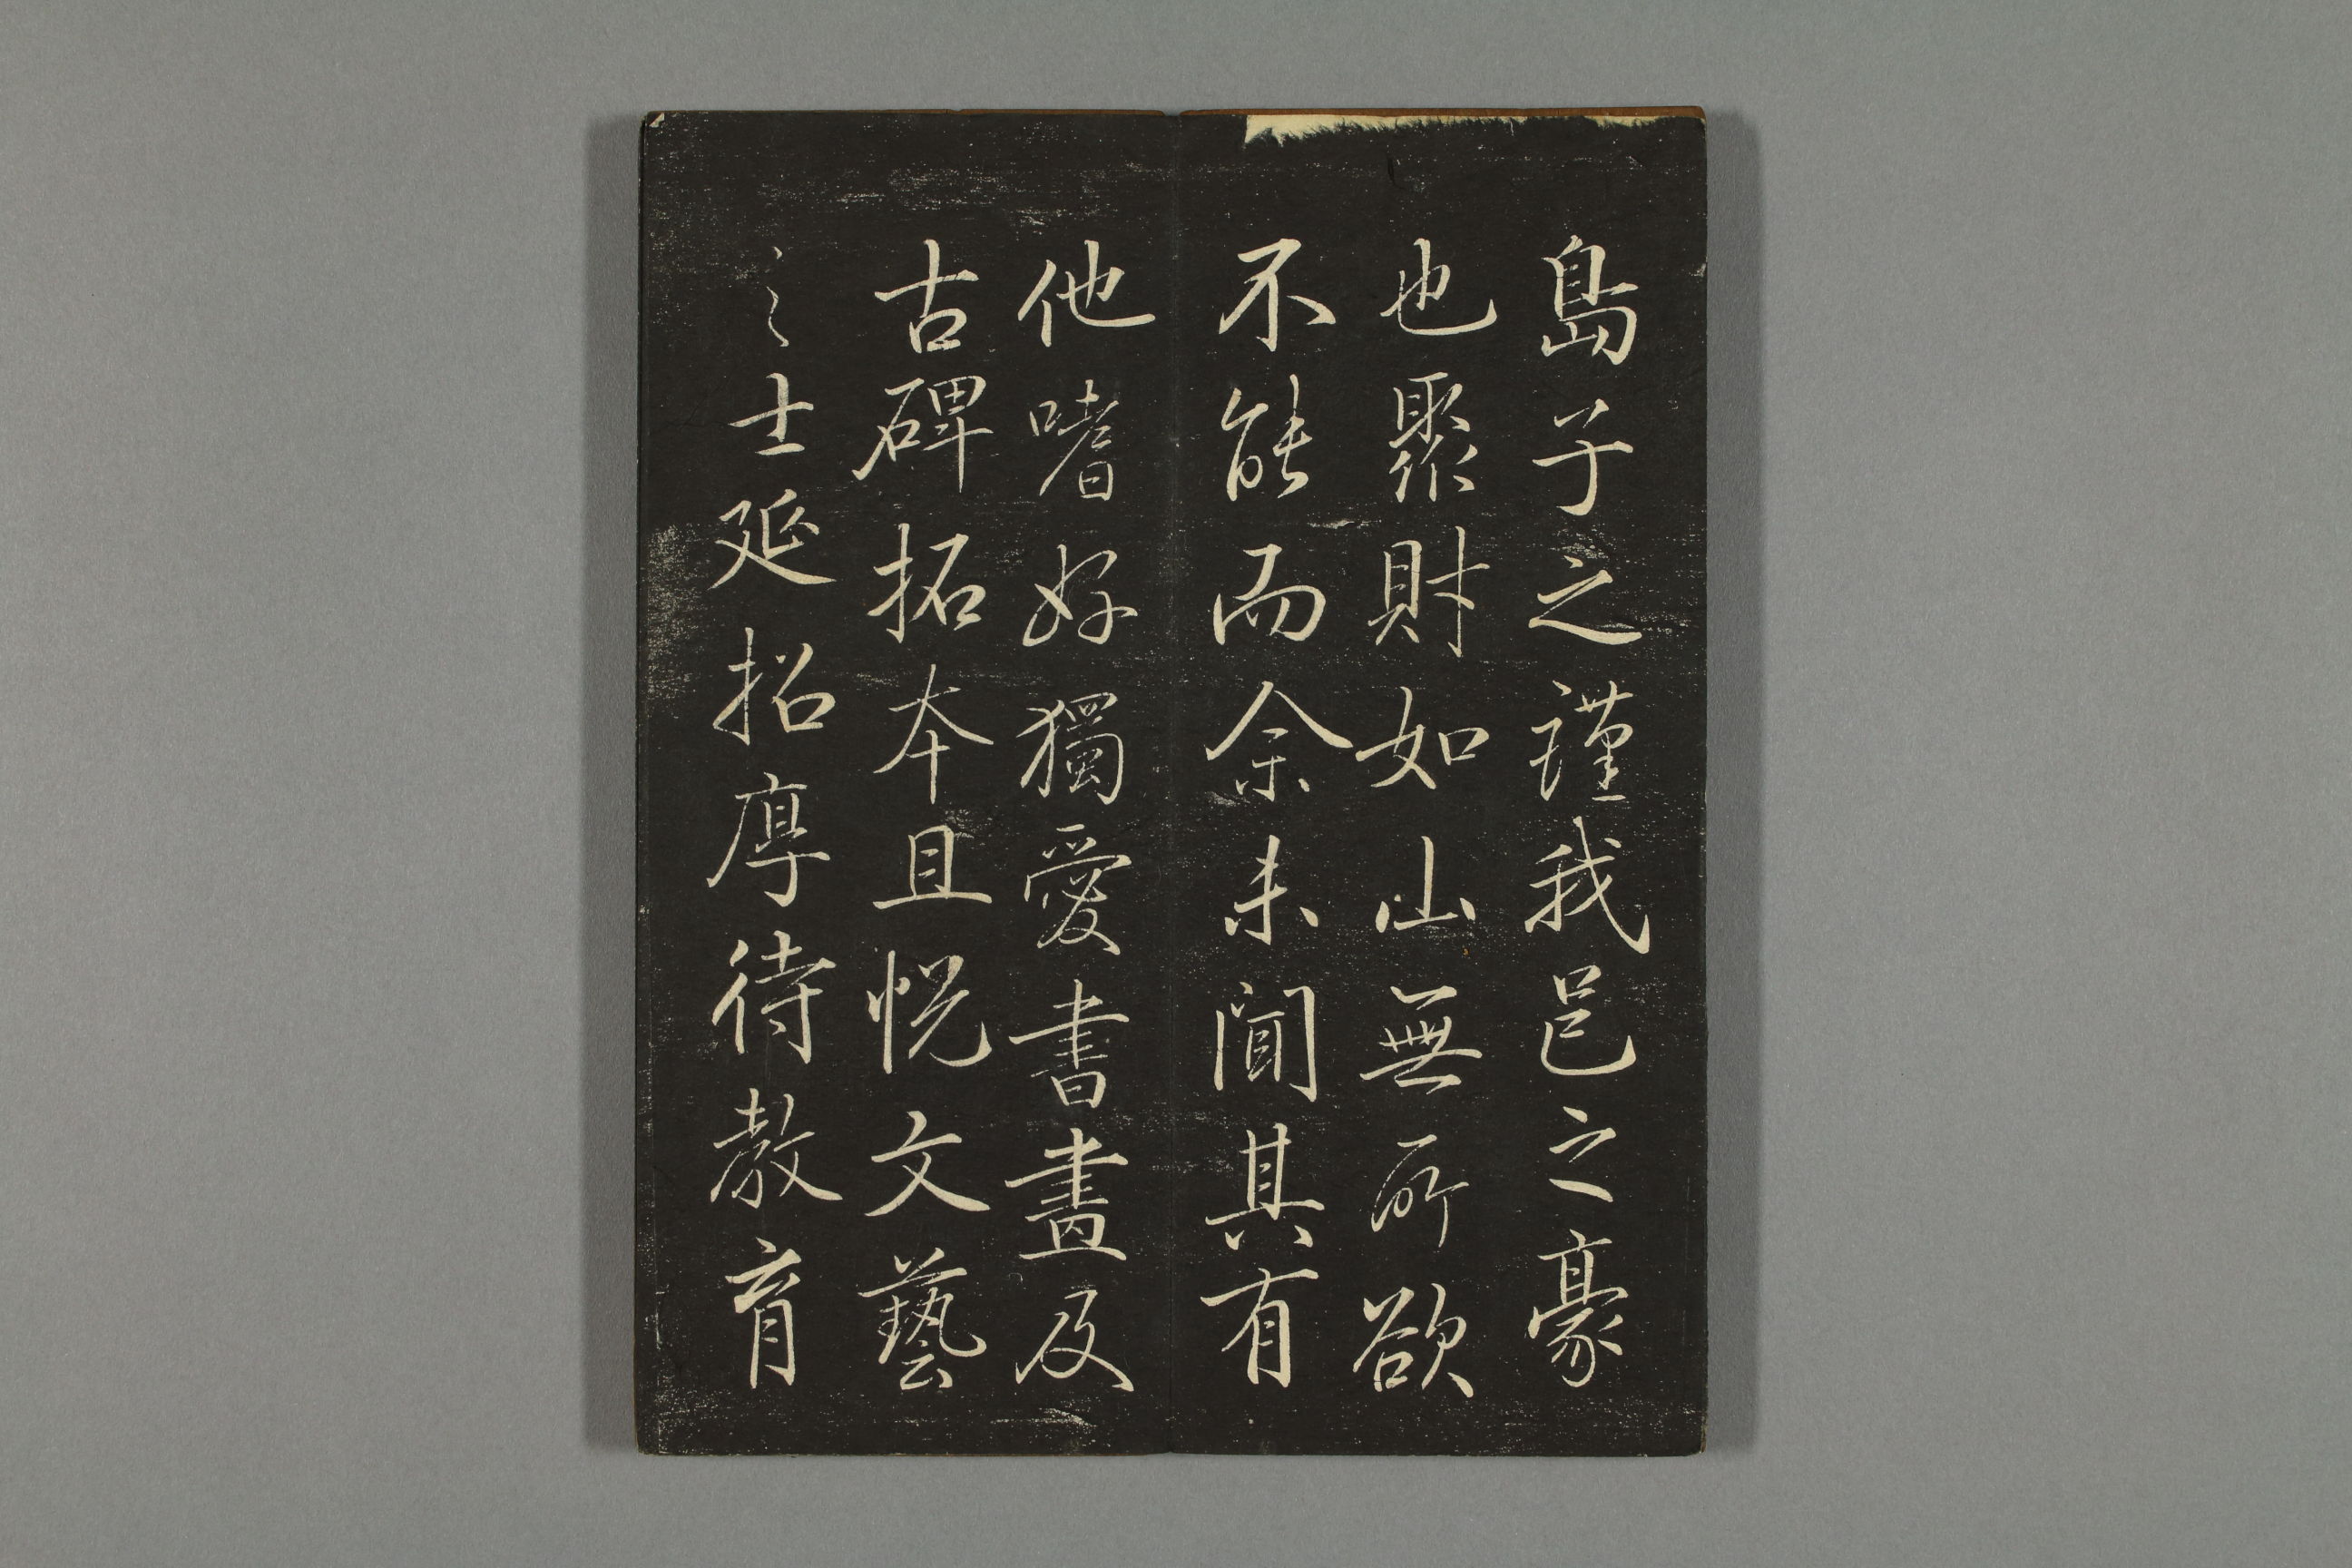 島子之瑾我邑之豪
也聚財如山無所欲
不能而余未聞其有
他嗜好獨愛書畫及
古碑拓本且悦文藝
之士延招厚待教育